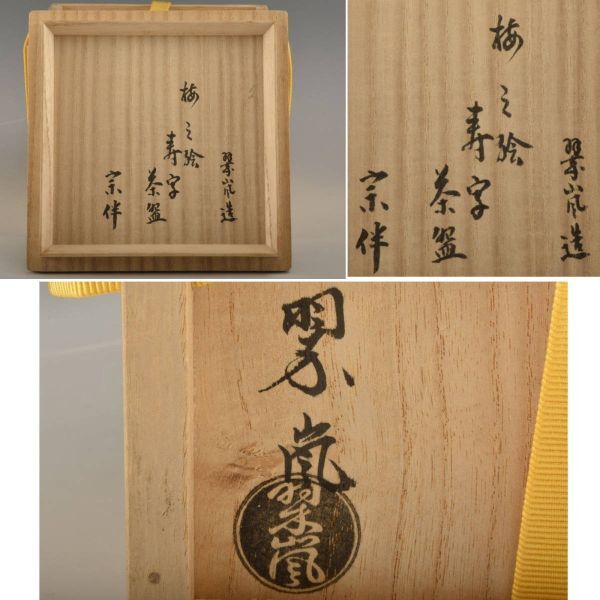 翠嵐造
梅之絵
寿字
茶盌
宗伴
翠嵐造
梅之絵
寿字
茶盌
宗伴
翠嵐
翠嵐